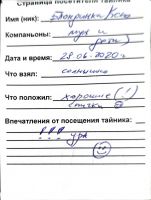 Страница посетителя тайника
Имя (ник):
Компаньоны: муж и
дети
Дата и время: 28.06.2020г
Что взял: солнышко
Что положил: хорошие (!)
Впечатления от посещения тайника
!!! ура